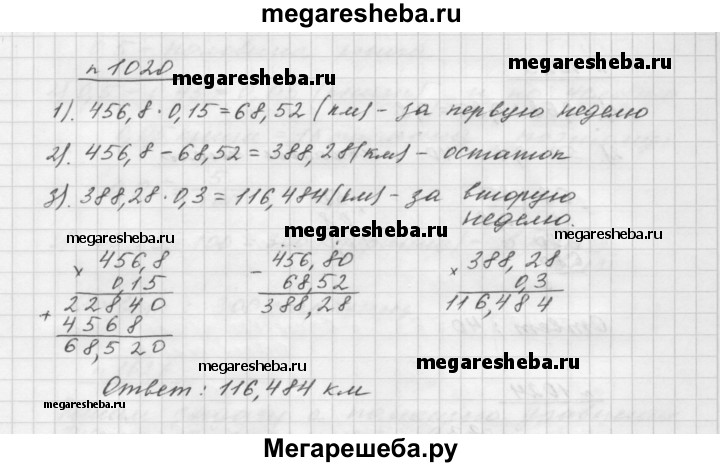 megaresheba.ru
n 1020
megaresheba.ru
megaresheba.ru
1). 456,8 · 0,15 = 68,52 (км) - за первую неделю
2). 456,8 - 68,52 = 388,28 (км) - остаток
3). 388,28 · 0,3 = 116,484 (км) - за вторую
неделю.
megaresheba.ru
megaresheba.ru
megaresheba.ru
× 456,8
0,15
+ 22840
4568
68,520
- 456,80
68,52
388,28
× 388,28
0,3
116,484
megaresheba.ru
megaresheba.ru
Ответ: 116,484 км
megaresheba.ru
Мегарешеба.ру